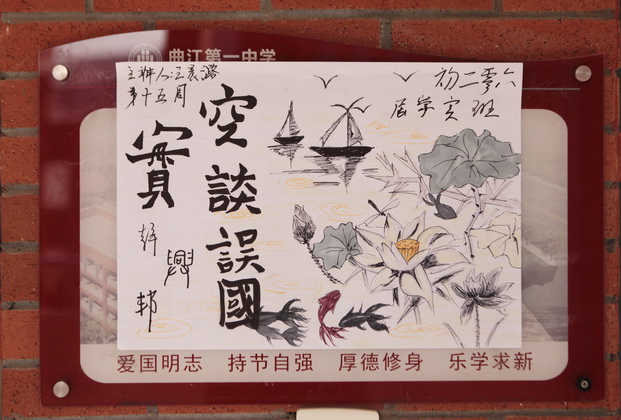 曲江第一中学
主辦人:王晨潞
第十五周
初二零六
居学实班
空談誤國
實幹興邦
爱国明志 持节自强 厚德修身 乐学求新